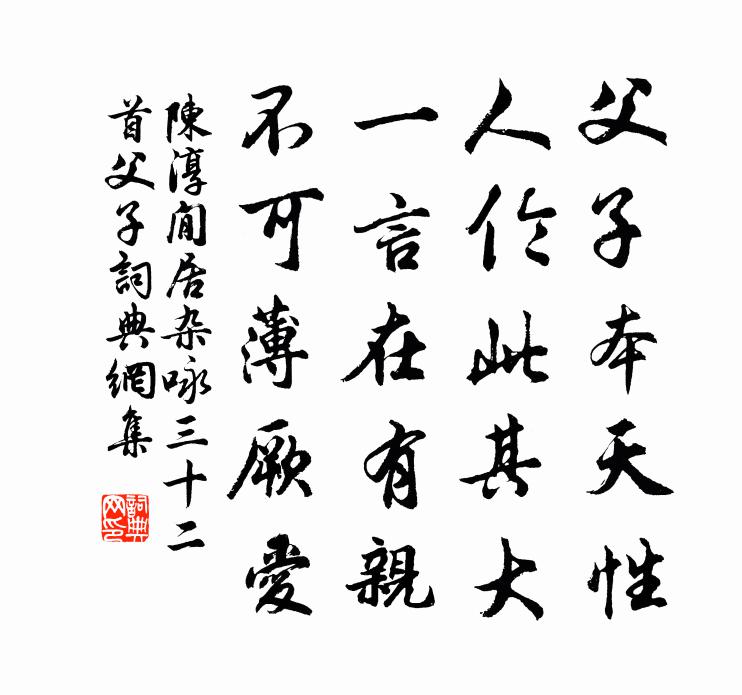 父子本天性
人伦此其大
一言在有親
不可薄厥愛
陳淳閒居杂咏三十二
首父子詞典網集
詞典
网印